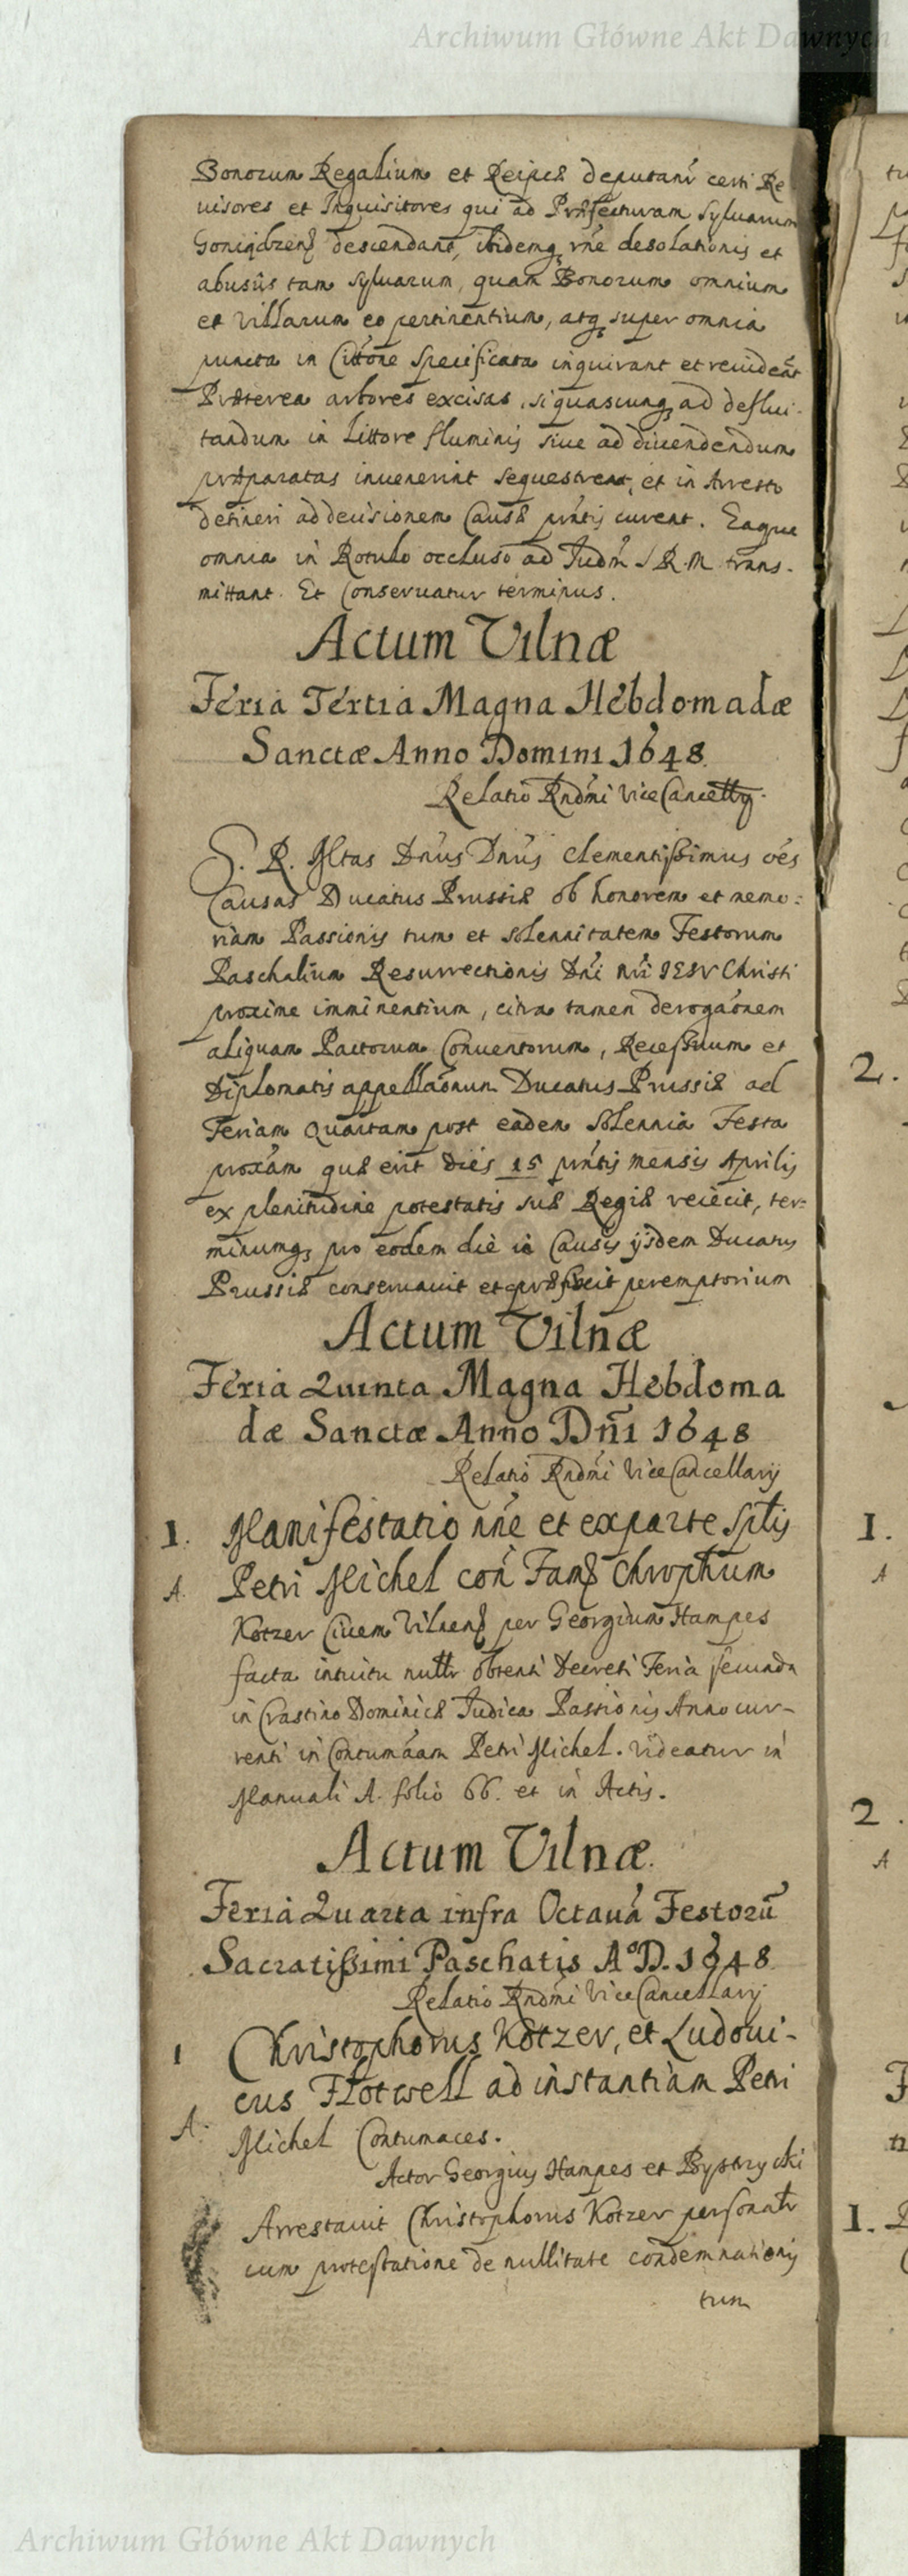 Archiwum Główne Akt Dawnych
Bonorum Regalium et Reipcæ deputant certi Re
uisores et Inquisitores qui ad Præfecturam Syluarum
Goniądzens descendant, ibidemq
desolationis et
abusûs tam Syluarum, quam Bonorum omnium
et Villarum eo pertinentium, atq super omnia
puncta in Cittône Specificata inquirant et reuideãt
Præterea arbores excisas, si quascunq ad deflui-
tandum in Littore fluminis siue ad diuendendum
præparatas inuenerint sequestrent, et in Arresto
detineri ad decisionem Causæ pñtis curent. Eaque
omnia in Rotulo occluso ad Judm S R. M. trans-
mittant. Et Conseruatur terminus.
Actum Vilnæ
Feria Tertia Magna Hebdomadæ
Sanctæ Anno Domini 1648.
Relatio Rndmi Vice Cancellry.
S. R. Mtas Dnus Dnus Clementissimus oẽs
Causas Ducatus Prussiæ ob honorem et memo:
riam Passionis tum et solennitatem Festorum
Paschalium Resurrectionis Dni nri IESV Christi
proxime imminentium, citra tamen derogaõnem
aliquam Pactorum Conuentorum, Recessuum et
Diplomatis appellaõnum Ducatus Prussiæ ad
Feriam Quartam post eadem Solennia Festa
proxãm quæ erit dies 15 pñtis mensis Aprilis
ex plenitudine potestatis suæ Regiæ reiecit, ter-
minumq pro eodem die in Causis ijsdem Ducatus
Prussiæ conseruauit et præfixit peremptorium
Actum Vilnæ
Feria Quinta Magna Hebdoma
dæ Sanctæ Anno Dñi 1648
Relatio Rndmi Vice Cancellarij
1. Manifestatio nñe et ex parte Sptis
A. Petri Michel con Fams Chrophum
Kotzer Ciuem Vilnens per Georgium Hampes
facta intuitu nullr obtenti Decreti Feria secunda
in Crastino Dominicæ Judica Passionis Anno cur-
renti in Contumãam Petri Michel. Videatur in
Manuali A. folio 66. et in Actis.
Actum Vilnæ.
Feria Quarta infra Octauã Festorũ
Sacratissimi Paschatis A° D. 1648.
Relatio Rndmi Vice Cancellarij
1 Christophorus Kotzer, et Ludoui-
cus Flotwell ad instantiam Petri
A. Michel Contumaces.
Actor Georgius Hampes et Bystrycki
Arrestauit Christophorus Kotzer personalr
cum protestatione de nullitate condemnationis
tum
Archiwum Główne Akt Dawnych